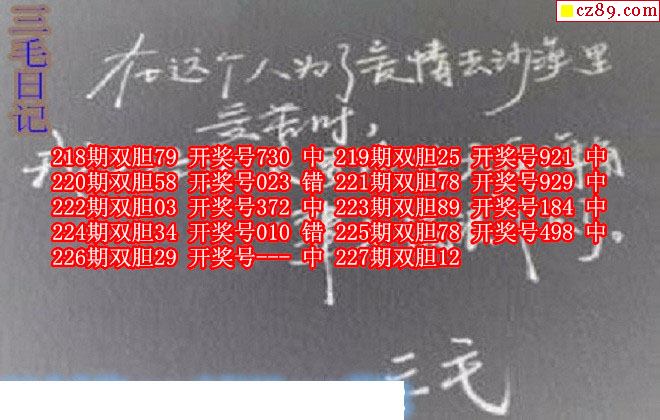 cz89.com
三毛日记
在这个人为了爱情去沙漠里
受苦时，
218期双胆79 开奖号730 中 219期双胆25 开奖号921 中
220期双胆58 开奖号023 错 221期双胆78 开奖号929 中
222期双胆03 开奖号372 中 223期双胆89 开奖号184 中
224期双胆34 开奖号010 错 225期双胆78 开奖号498 中
226期双胆29 开奖号--- 中 227期双胆12
三毛